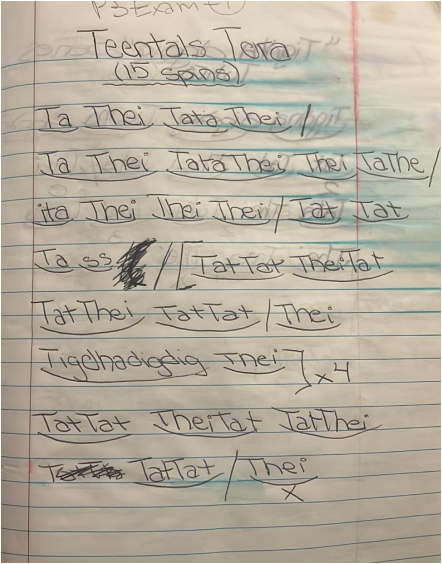 P3 Exam
Teentals Tora
(15 spins)
Ta Thei Tata Thei /
Ta Thei Tata Thei Thei TaThe /
ita Thei Thei Thei / Tat Tat
Ta ss // [ TatTat TheiTat
TatThei TatTat / Thei
Tigdhadigdig Thei ] x4
TatTat TheiTat TatThei
TatTat / Thei
x